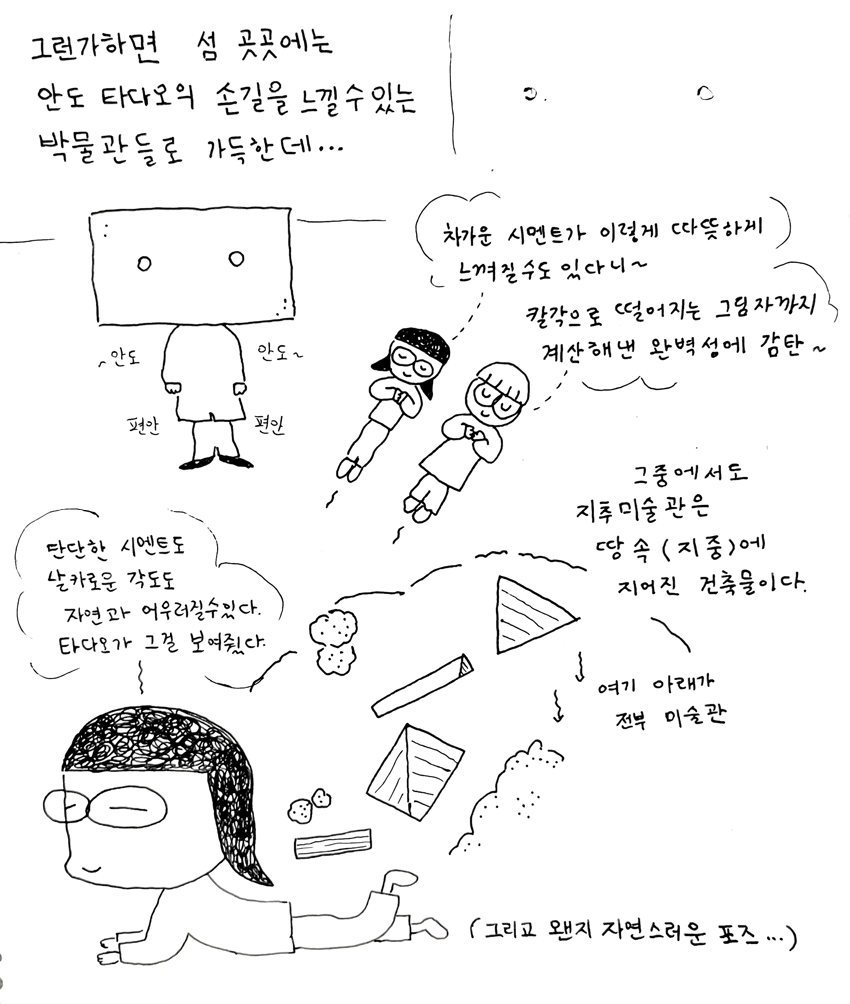 그런가하면 섬 곳곳에는
안도 타다오의 손길을 느낄 수 있는
박물관들로 가득한데...
차가운 시멘트가 이렇게 따뜻하게
느껴질수도 있다니~
칼각으로 떨어지는 그림자까지
계산해낸 완벽성에 감탄~
~안도
안도~
편안
편안
그중에서도
지추미술관은
땅 속 (지중)에
지어진 건축물이다.
단단한 시멘트도
날카로운 각도도
자연과 어우러질수있다.
타다오가 그걸 보여줬다.
여기 아래가
전부 미술관
(그리고 왠지 자연스러운 포즈...)